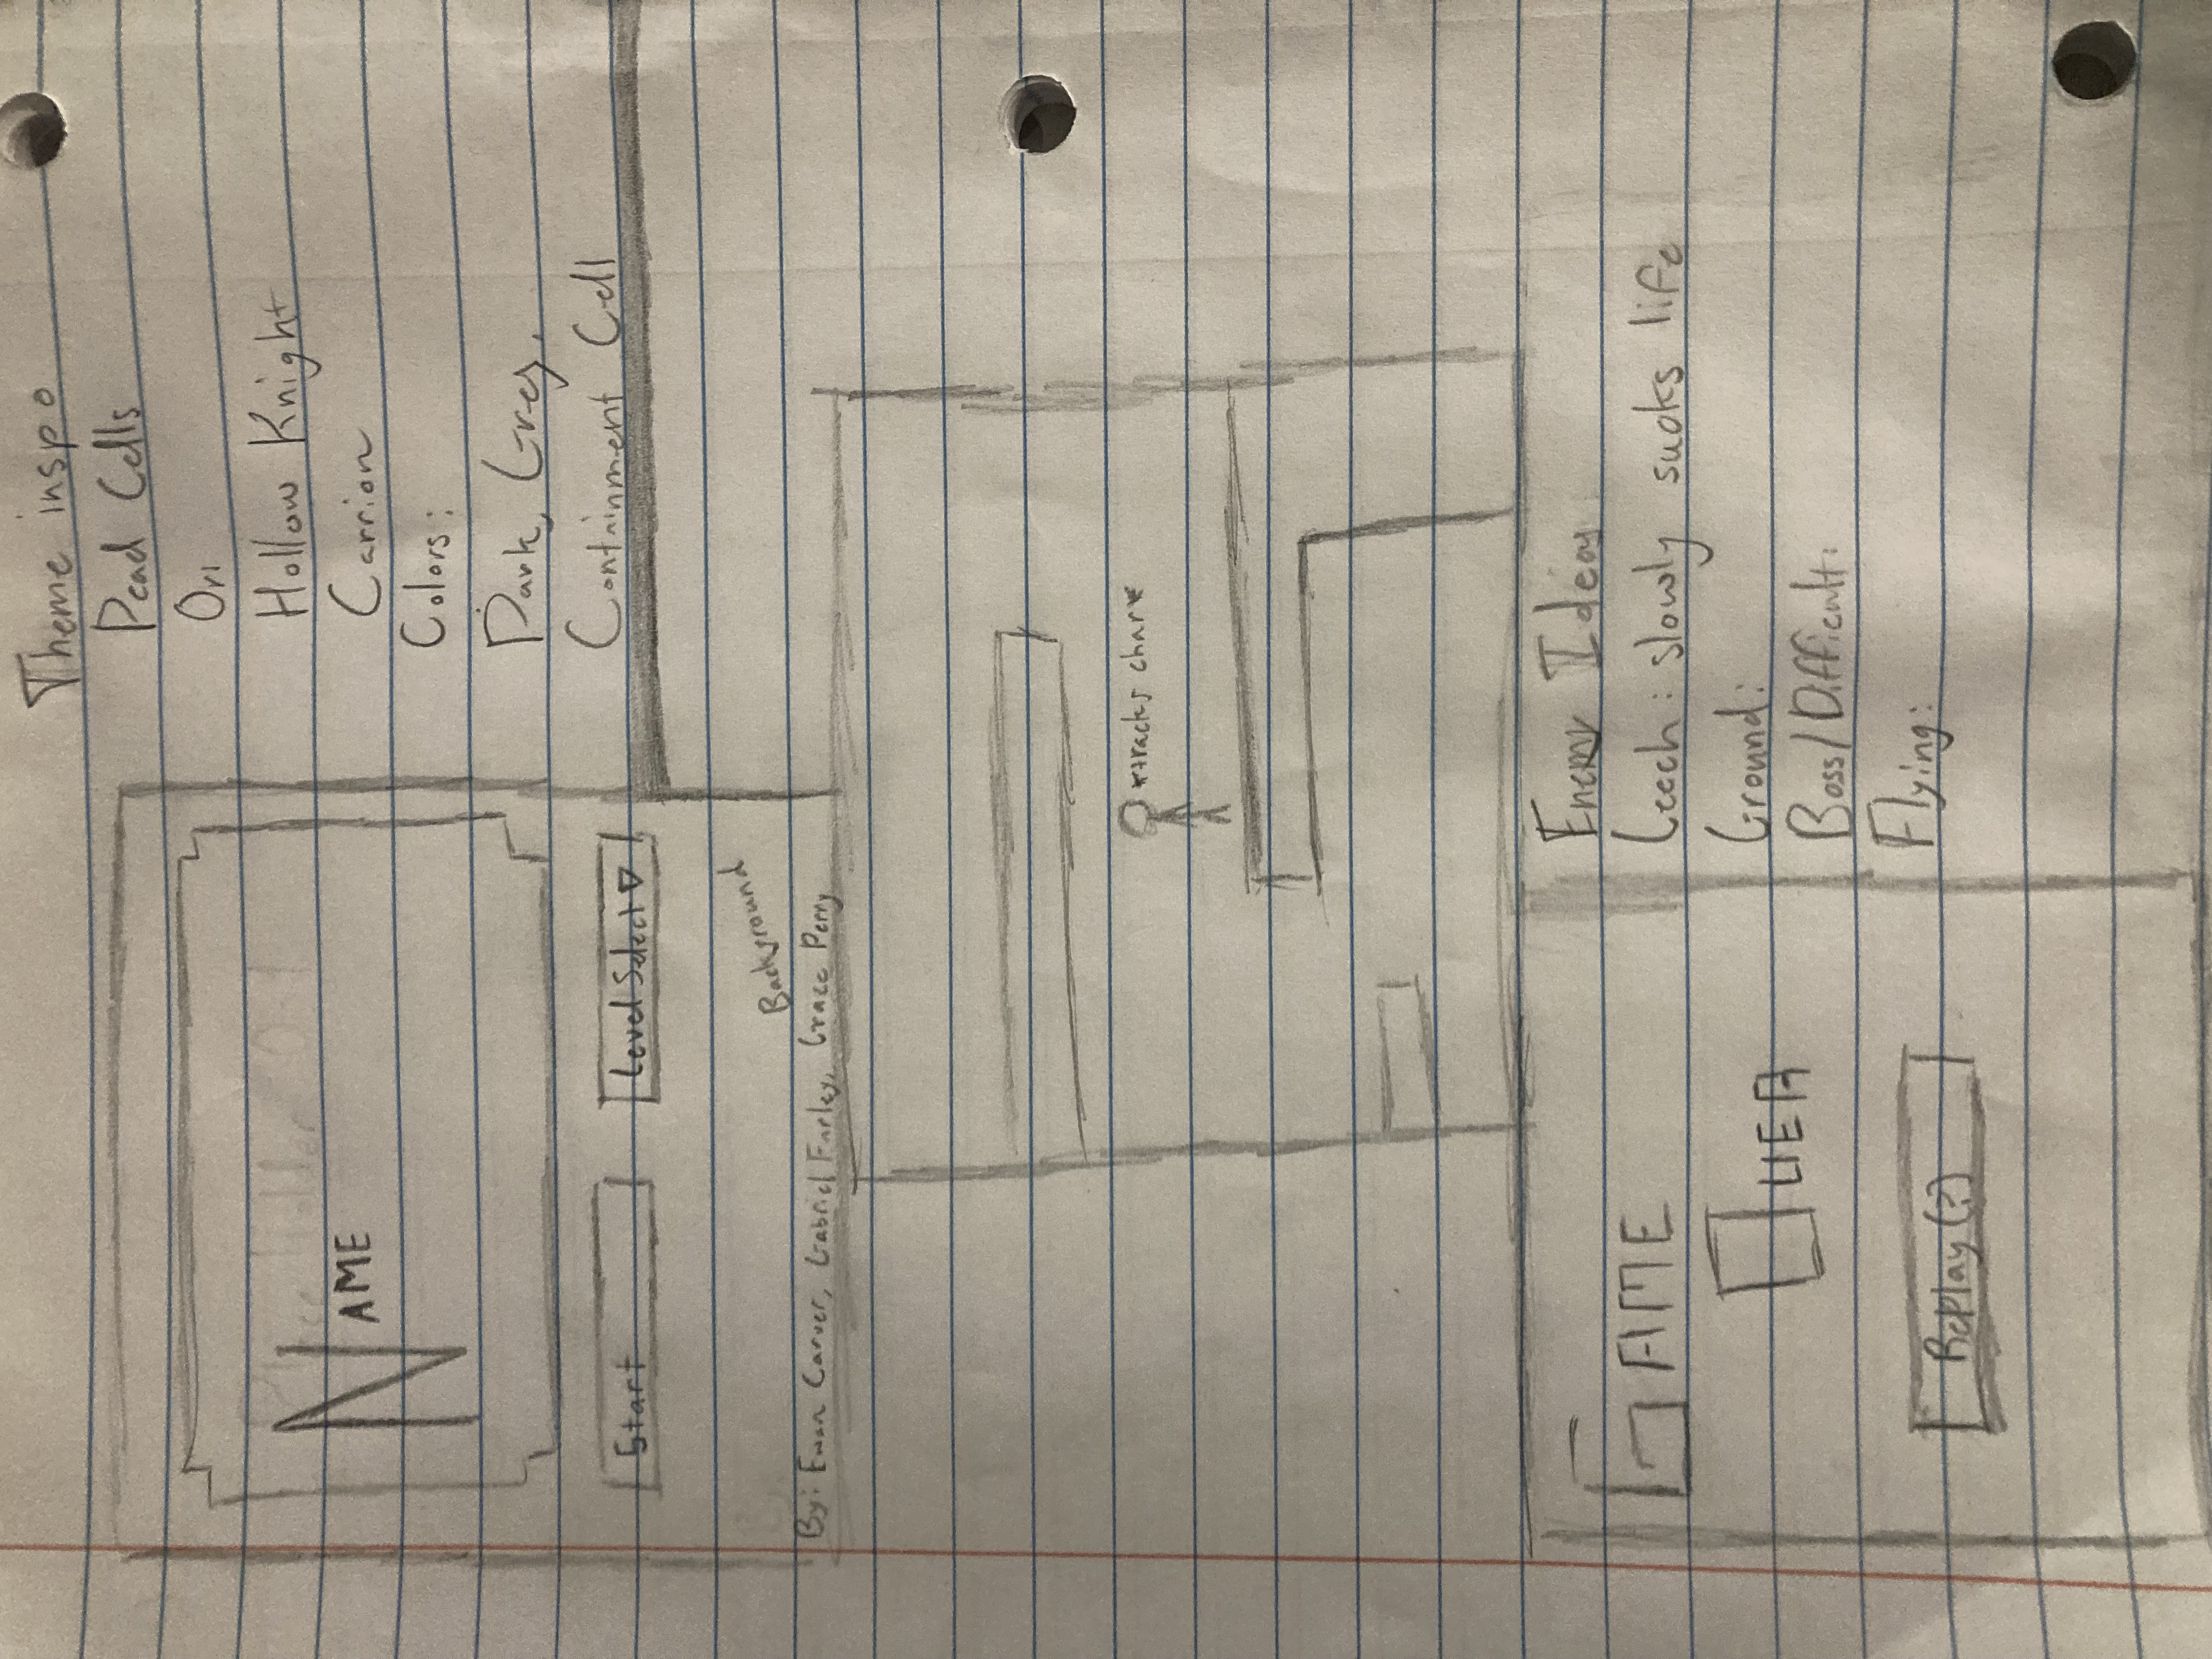 Theme inspo
Dead Cells
Ori
Hollow Knight
Carrion
Colors:
Dark, Grey,
Containment Cell
NAME
Start
Level Select ▽
Background
By: Ewan Carver, Gabriel Farley, Grace Perry
*tracks char*
GAME
OVER
Replay(?)
Enemy Ideas
Leech: slowly sucks life
Ground:
Boss/Difficult:
Flying: